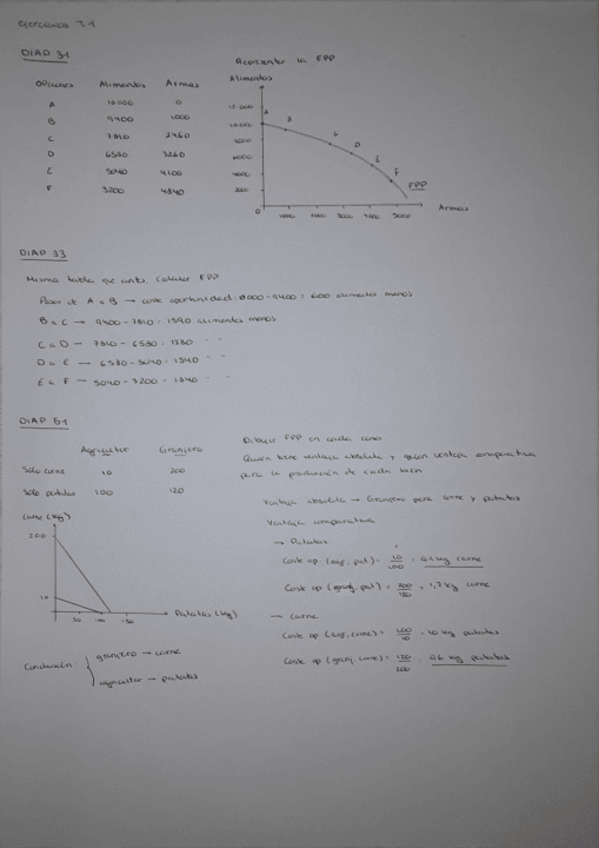 Ejercicios 3-1
DIAP 31
Opciones Alimentos Armas
A 10000 0
B 9400 1000
C 7810 2460
D 6530 3260
E 5040 4100
F 3200 4840
la FPP
Alimentos
10.000
8000
6000
4000
2000
0
A B C D E F
FPP
1000 2000 3000 4000 5000
Armas
DIAP 33
Misma tabla que antes. Calcular FPP
Pasar de A a B → coste oportunidad: 10000 - 9400 = 600 alimentos menos
B a C → 9400 - 7810 = 1590 alimentos menos
C a D → 7810 - 6530 = 1280 " "
D a E → 6530 - 5040 = 1540 " "
E a F → 5040 - 3200 = 1840 " "
DIAP 51
Agricultor Granjero
Sólo carne 10 200
Sólo patatas 100 120
Dibujar FPP en cada caso.
Quien tiene ventaja absoluta y quien ventaja comparativa
para la producción de cada bien
Ventaja absoluta → Granjero para carne y patatas
Ventaja comparativa
→ Patatas
Coste op (agr, pat) = 10/100 = 0,1 kg carne
Coste op (granj, pat) = 200/120 = 1,7 kg carne
→ Carne
Coste op (agr, carne) = 100/10 = 10 kg patatas
Coste op (granj, carne) = 120/200 = 0,6 kg patatas
Carne (kg)
200
10
50 100 150
Patatas (kg)
Conclusión: granjero → carne
agricultor → patatas